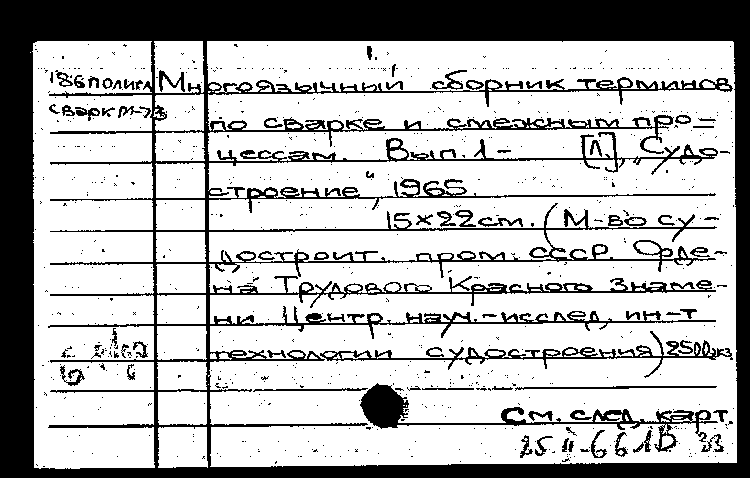 1.
Многоязычный сборник терминов
сварк М-73
по сварке и смежным про-
цессам. Вып. 1- [Л.], „Судо-
строение“, 1965.
15×22 см. (М-во су-
достроит. пром. СССР. Орде-
на Трудового Красного Знаме-
ни Центр. науч.-исслед. ин-т
технологии судостроения) 2500 экз.
См. след. карт.
25 II-66 1В 33